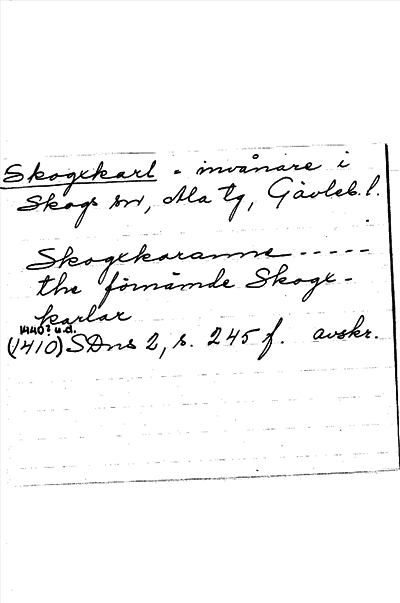 Skogxkarl - invånare i
Skogs sn, Ala tg, Gävleb. l.
Skogxkaranne - - - - -
the förnämde Skogx-
karlar
1440? u.d.
(1410) SDns 2, s. 245 f. avskr.